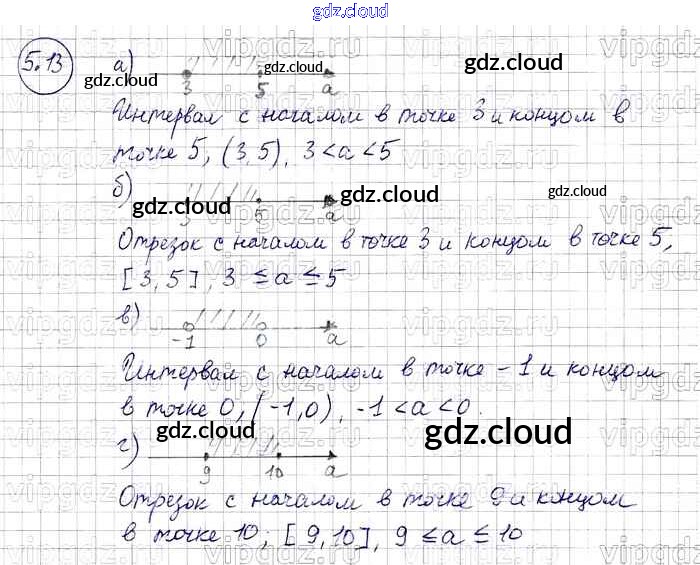 gdz.cloud
5.13 а) gdz.cloud
gdz.cloud
gdz.cloud
3 5 а
Интервал с началом в точке 3 и концом в
точке 5, (3,5), 3 < а < 5
б) gdz.cloud gdz.cloud gdz.cloud
3 5 а
Отрезок с началом в точке 3 и концом в точке 5,
[3,5], 3 ≤ а ≤ 5
в)
-1 0 а
Интервал с началом в точке -1 и концом
в точке 0, (-1,0), -1 < а < 0.
г) gdz.cloud gdz.cloud
9 10 а
Отрезок с началом в точке 9 и концом
в точке 10; [9,10], 9 ≤ а ≤ 10
vipgdz.ru